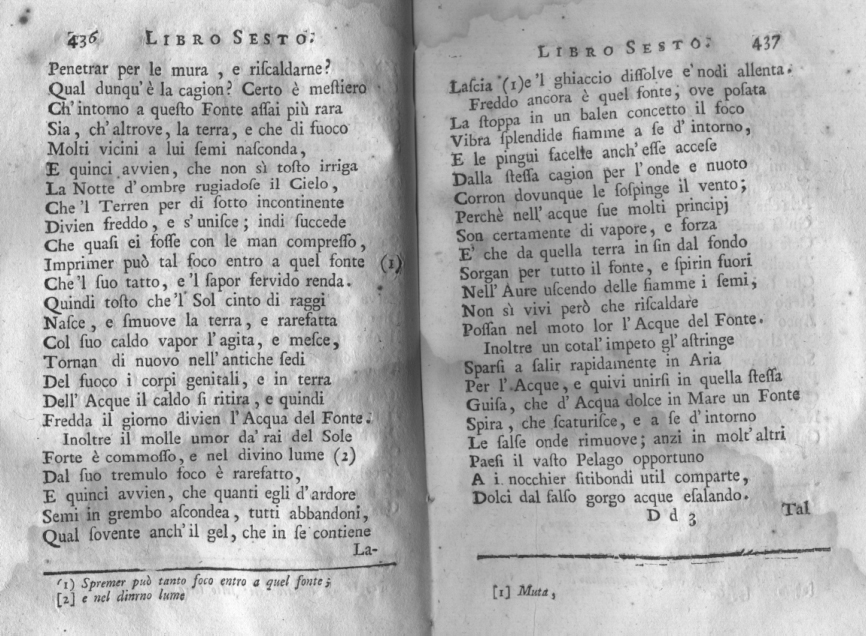 436 LIBRO SESTO.
Penetrar per le mura , e riſcaldarne?
Qual dunqu'è la cagion? Certo è meſtiero
Ch'intorno a queſto Fonte aſſai più rara
Sia, ch'altrove, la terra, e che di fuoco
Molti vicini a lui ſemi naſconda,
E quinci avvien, che non sì toſto irriga
La Notte d'ombre rugiadoſe il Cielo,
Che 'l Terren per di ſotto incontinente
Divien freddo, e s'uniſce; indi ſuccede
Che quaſi ei foſſe con le man compreſſo,
Imprimer può tal foco entro a quel fonte (1)
Che 'l ſuo tatto, e 'l ſapor fervido renda.
Quindi toſto che 'l Sol cinto di raggi
Naſce, e ſmuove la terra, e rarefatta
Col ſuo caldo vapor l'agita, e meſce,
Tornan di nuovo nell'antiche ſedi
Del fuoco i corpi genitali, e in terra
Dell' Acque il caldo ſi ritira, e quindi
Fredda il giorno divien l'Acqua del Fonte.
Inoltre il molle umor da' rai del Sole
Forte è commoſſo, e nel divino lume (2)
Dal ſuo tremulo foco è rarefatto,
E quinci avvien, che quanti egli d'ardore
Semi in grembo aſcondea, tutti abbandoni,
Qual ſovente anch'il gel, che in ſe contiene
La-
(1) Spremer può tanto foco entro a quel fonte;
[2] e nel dinrno lume
LIBRO SESTO. 437
Laſcia (1) e 'l ghiaccio diſſolve e' nodi allenta.
Freddo ancora è quel fonte, ove poſata
La ſtoppa in un balen concetto il foco
Vibra ſplendide fiamme a ſe d' intorno,
E le pingui facelle anch'eſſe acceſe
Dalla ſteſſa cagion per l'onde e nuoto
Corron dovunque le ſoſpinge il vento;
Perchè nell' acque ſue molti principj
Son certamente di vapore, e forza
E' che da quella terra in ſin dal fondo
Sorgan per tutto il fonte, e ſpirin fuori
Nell' Aure uſcendo delle fiamme i ſemi;
Non sì vivi però che riſcaldare
Poſſan nel moto lor l'Acque del Fonte.
Inoltre un cotal' impeto gl' aſtringe
Sparſi a ſalir rapidamente in Aria
Per l'Acque, e quivi unirſi in quella ſteſſa
Guiſa, che d' Acqua dolce in Mare un Fonte
Spira, che ſcaturiſce, e a ſe d'intorno
Le ſalſe onde rimuove; anzi in molt'altri
Paeſi il vaſto Pelago opportuno
A i nocchier ſitibondi util comparte,
Dolci dal ſalſo gorgo acque eſalando.
D d 3 Tal
[1] Muta,